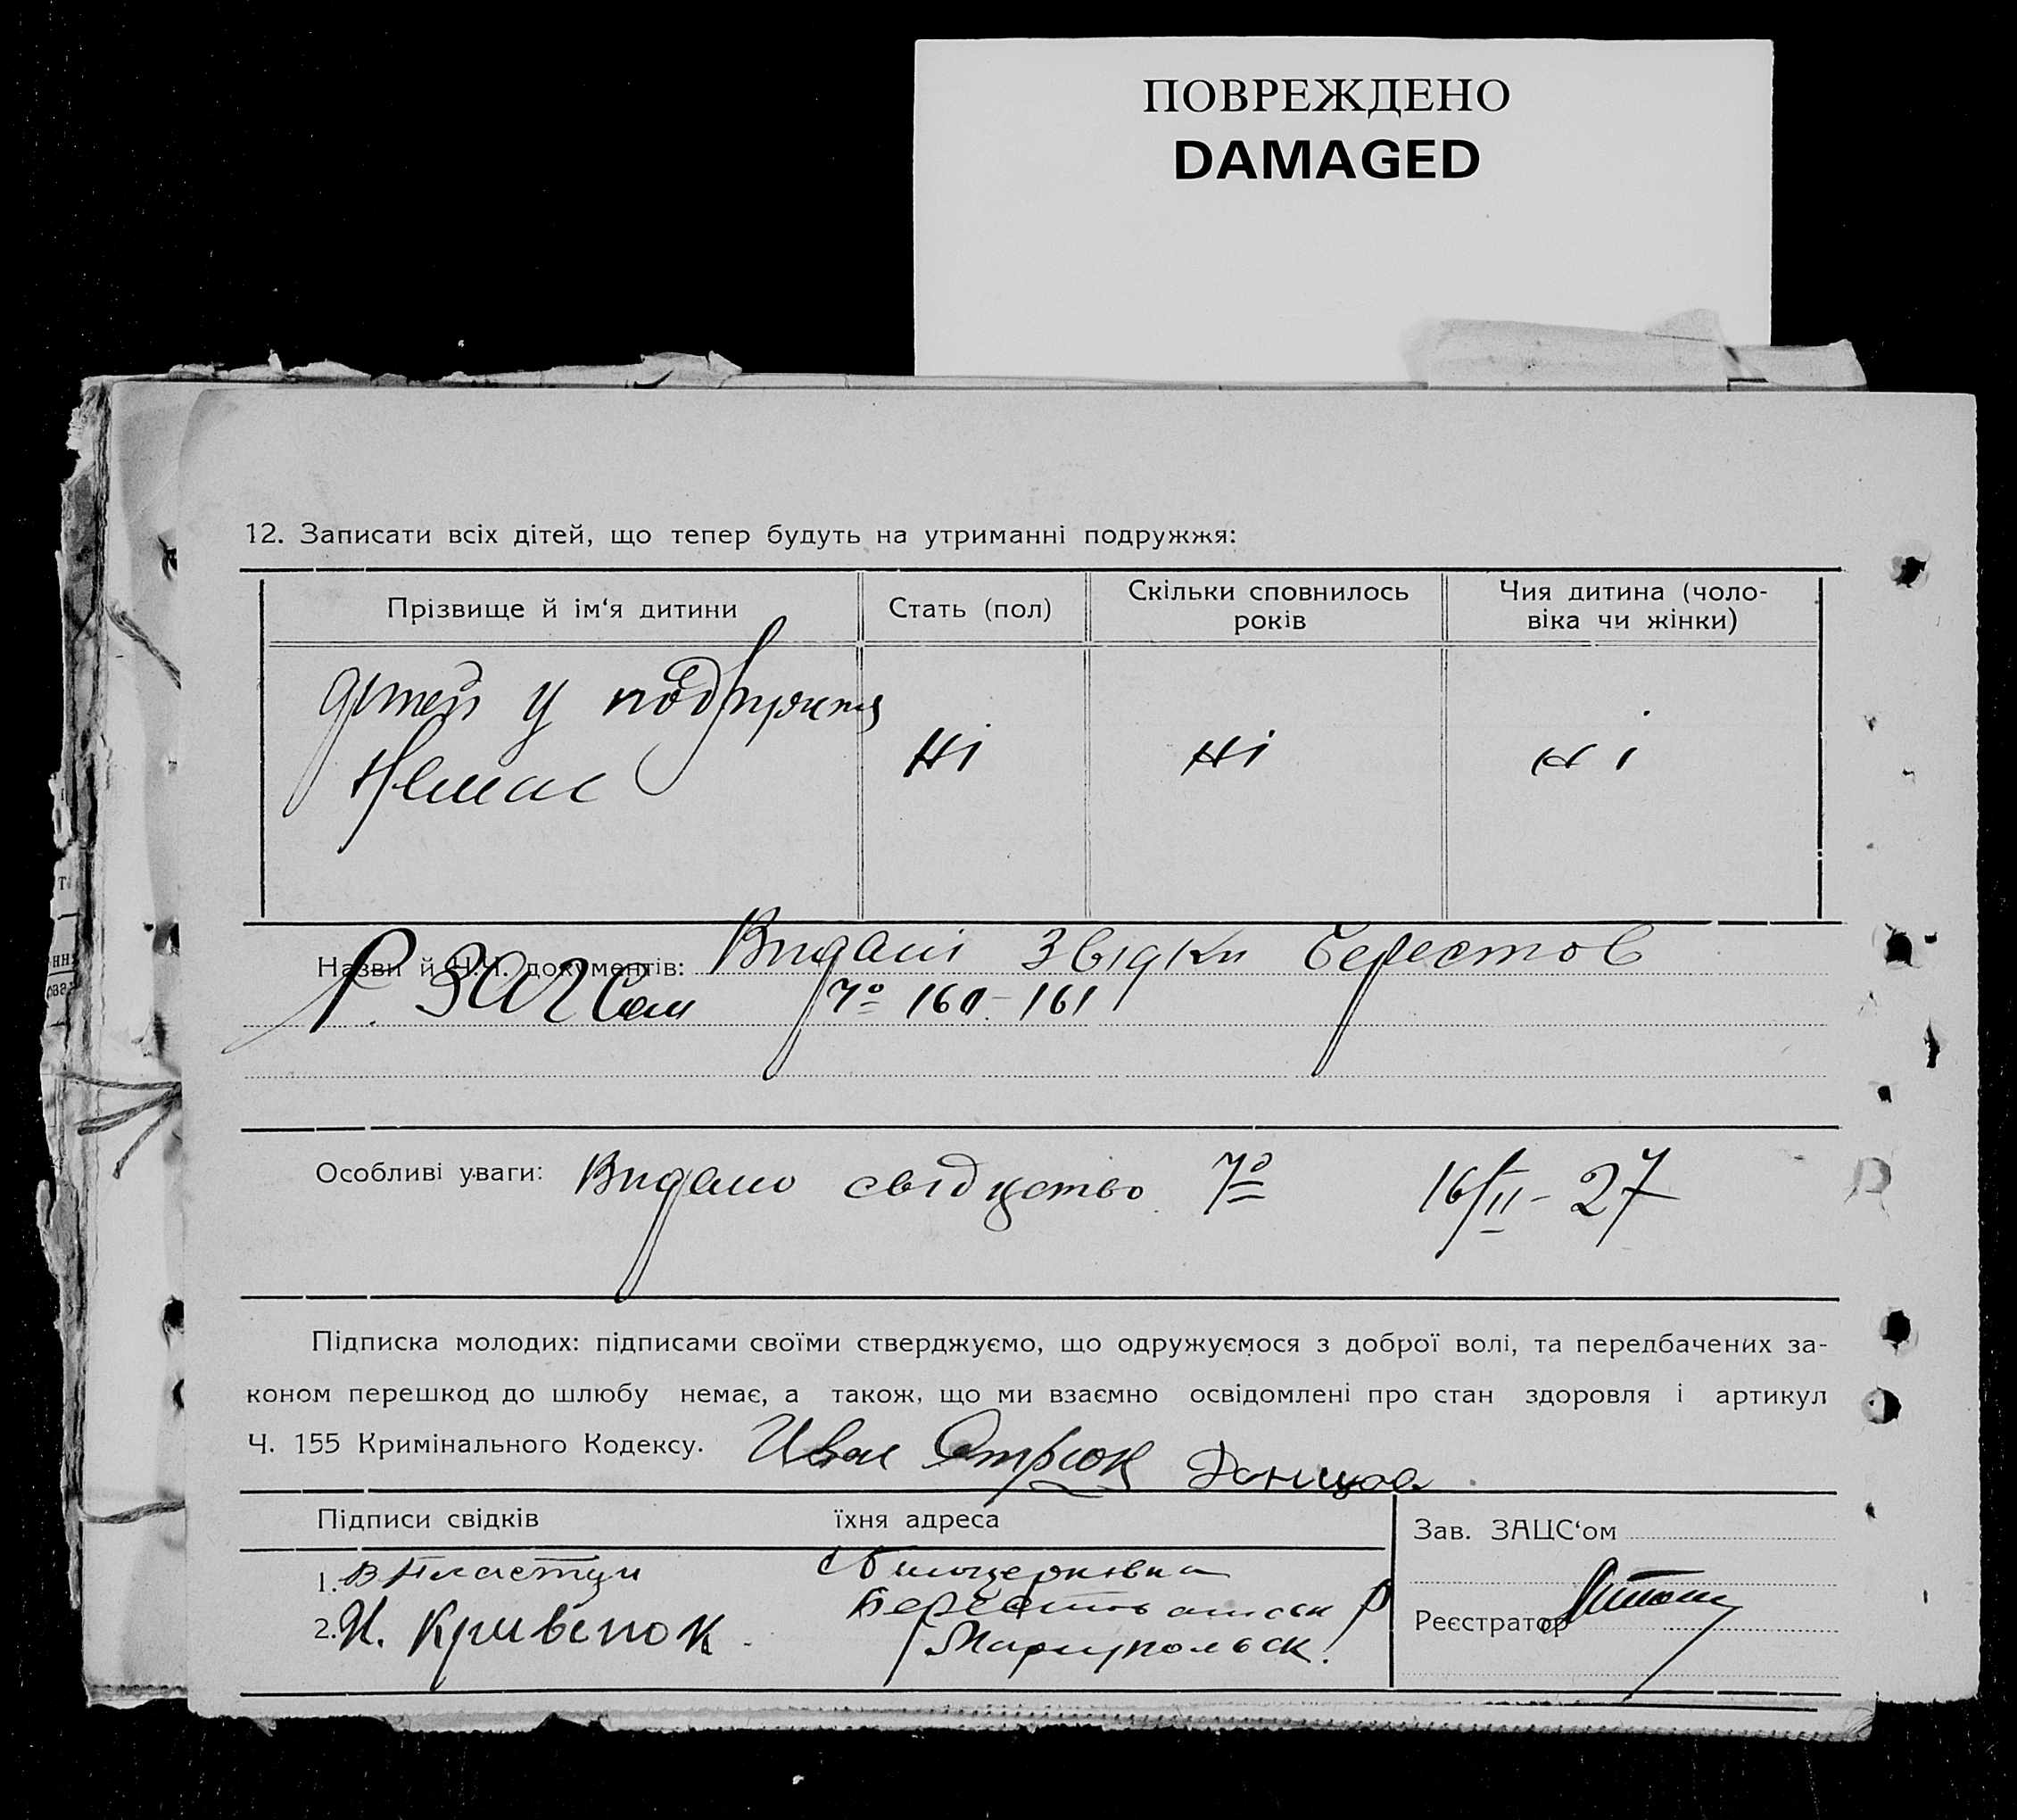 ПОВРЕЖДЕНО
DAMAGED
12. Записати всіх дітей, що тепер будуть на утриманні подружжя:
Прізвище й ім‘я дитини
Стать (пол)
Скільки сповнилось років
Чия дитина (чоло-
віка чи жінки)
дітей у
немає
ні
ні
ні
Назви й Ч.Ч. документів: Видані звідки Берестов
Р. ЗАГСом № 160-161
Особливі уваги: Видано свідцтво № 16/II-27
Підписка молодих: підписами своїми стверджуємо, що одружуємося з доброї волі, та передбачених за-
коном перешкод до шлюбу немає, а також, що ми взаємно освідомлені про стан здоровля і артикул
Ч. 155 Кримінального Кодексу.
Донцова
Підписи свідків
їхня адреса
Зав. ЗАЦС‘ом
1.
2. И. Кривенок
Мариупольск.
Реєстратор